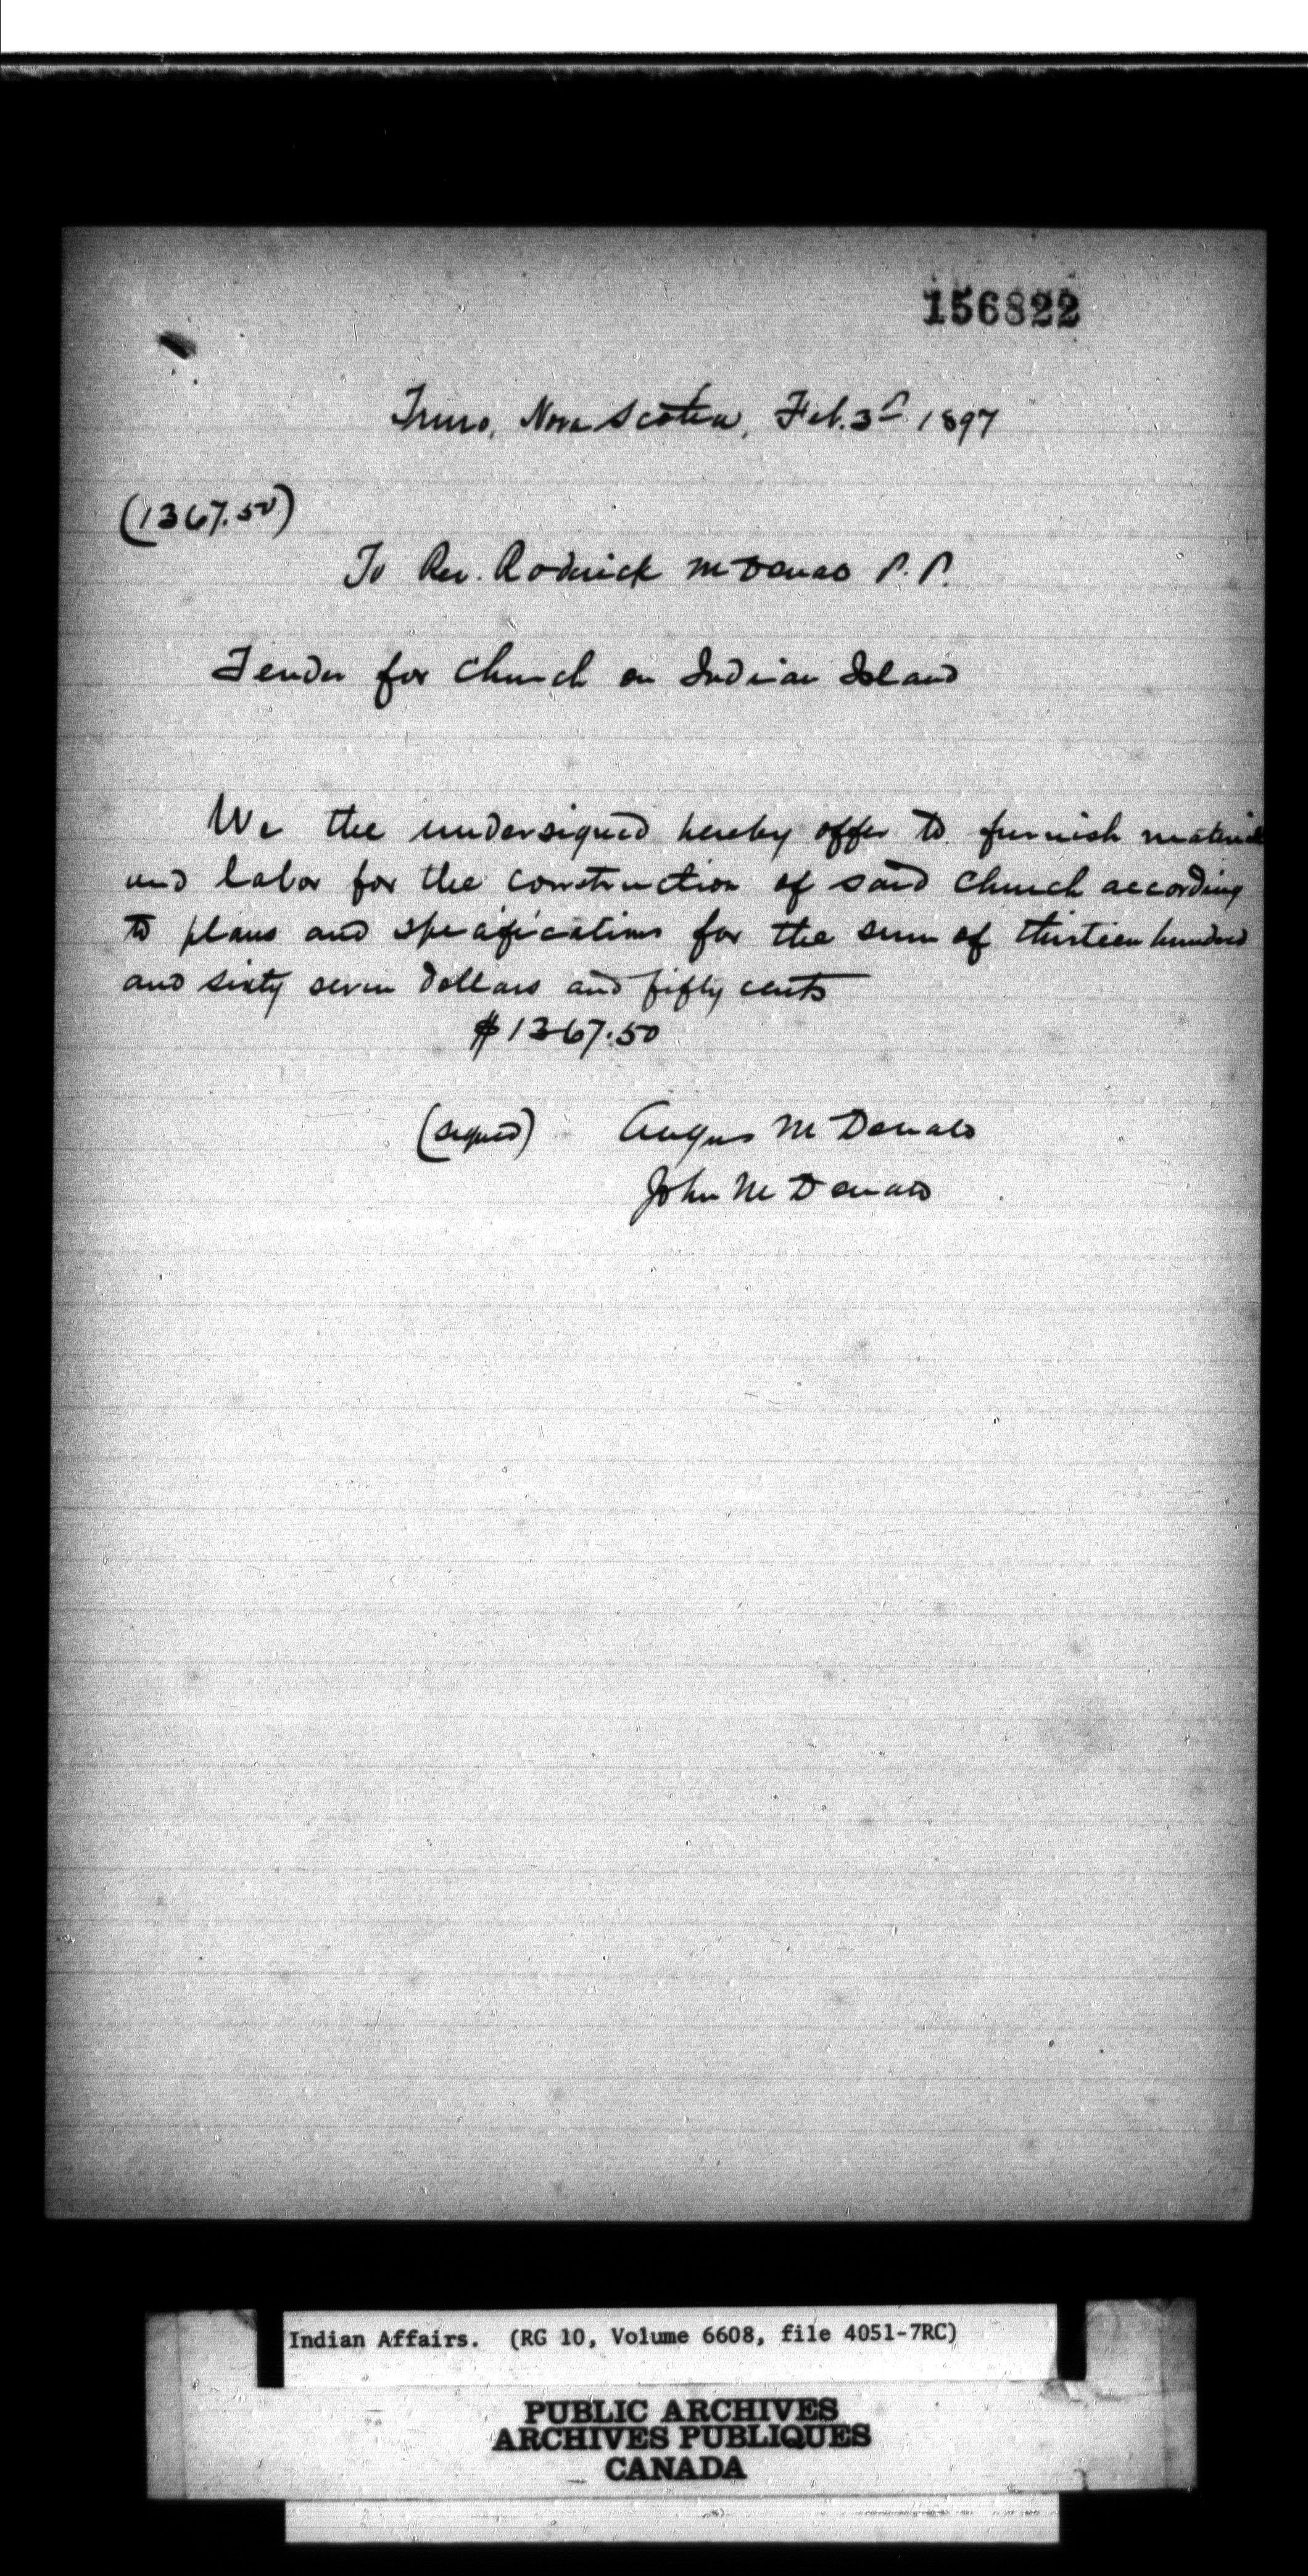 156822
Truro, Nova Scotia, Feb. 3rd 1897
(1367.50)
To Rev. Roderick McDonald P.P.
Tender for Church on Indian Island
We the undersigned hereby offer to furnish material
and labor for the construction of said Church according
to plans and specifications for the sum of thirteen hundred
and sixty seven dollars and fifty cents
$1367.50
(signed) Angus McDonald
John McDonald
Indian Affairs. (RG 10, Volume 6608, file 4051-7RC)
PUBLIC ARCHIVES
ARCHIVES PUBLIQUES
CANADA